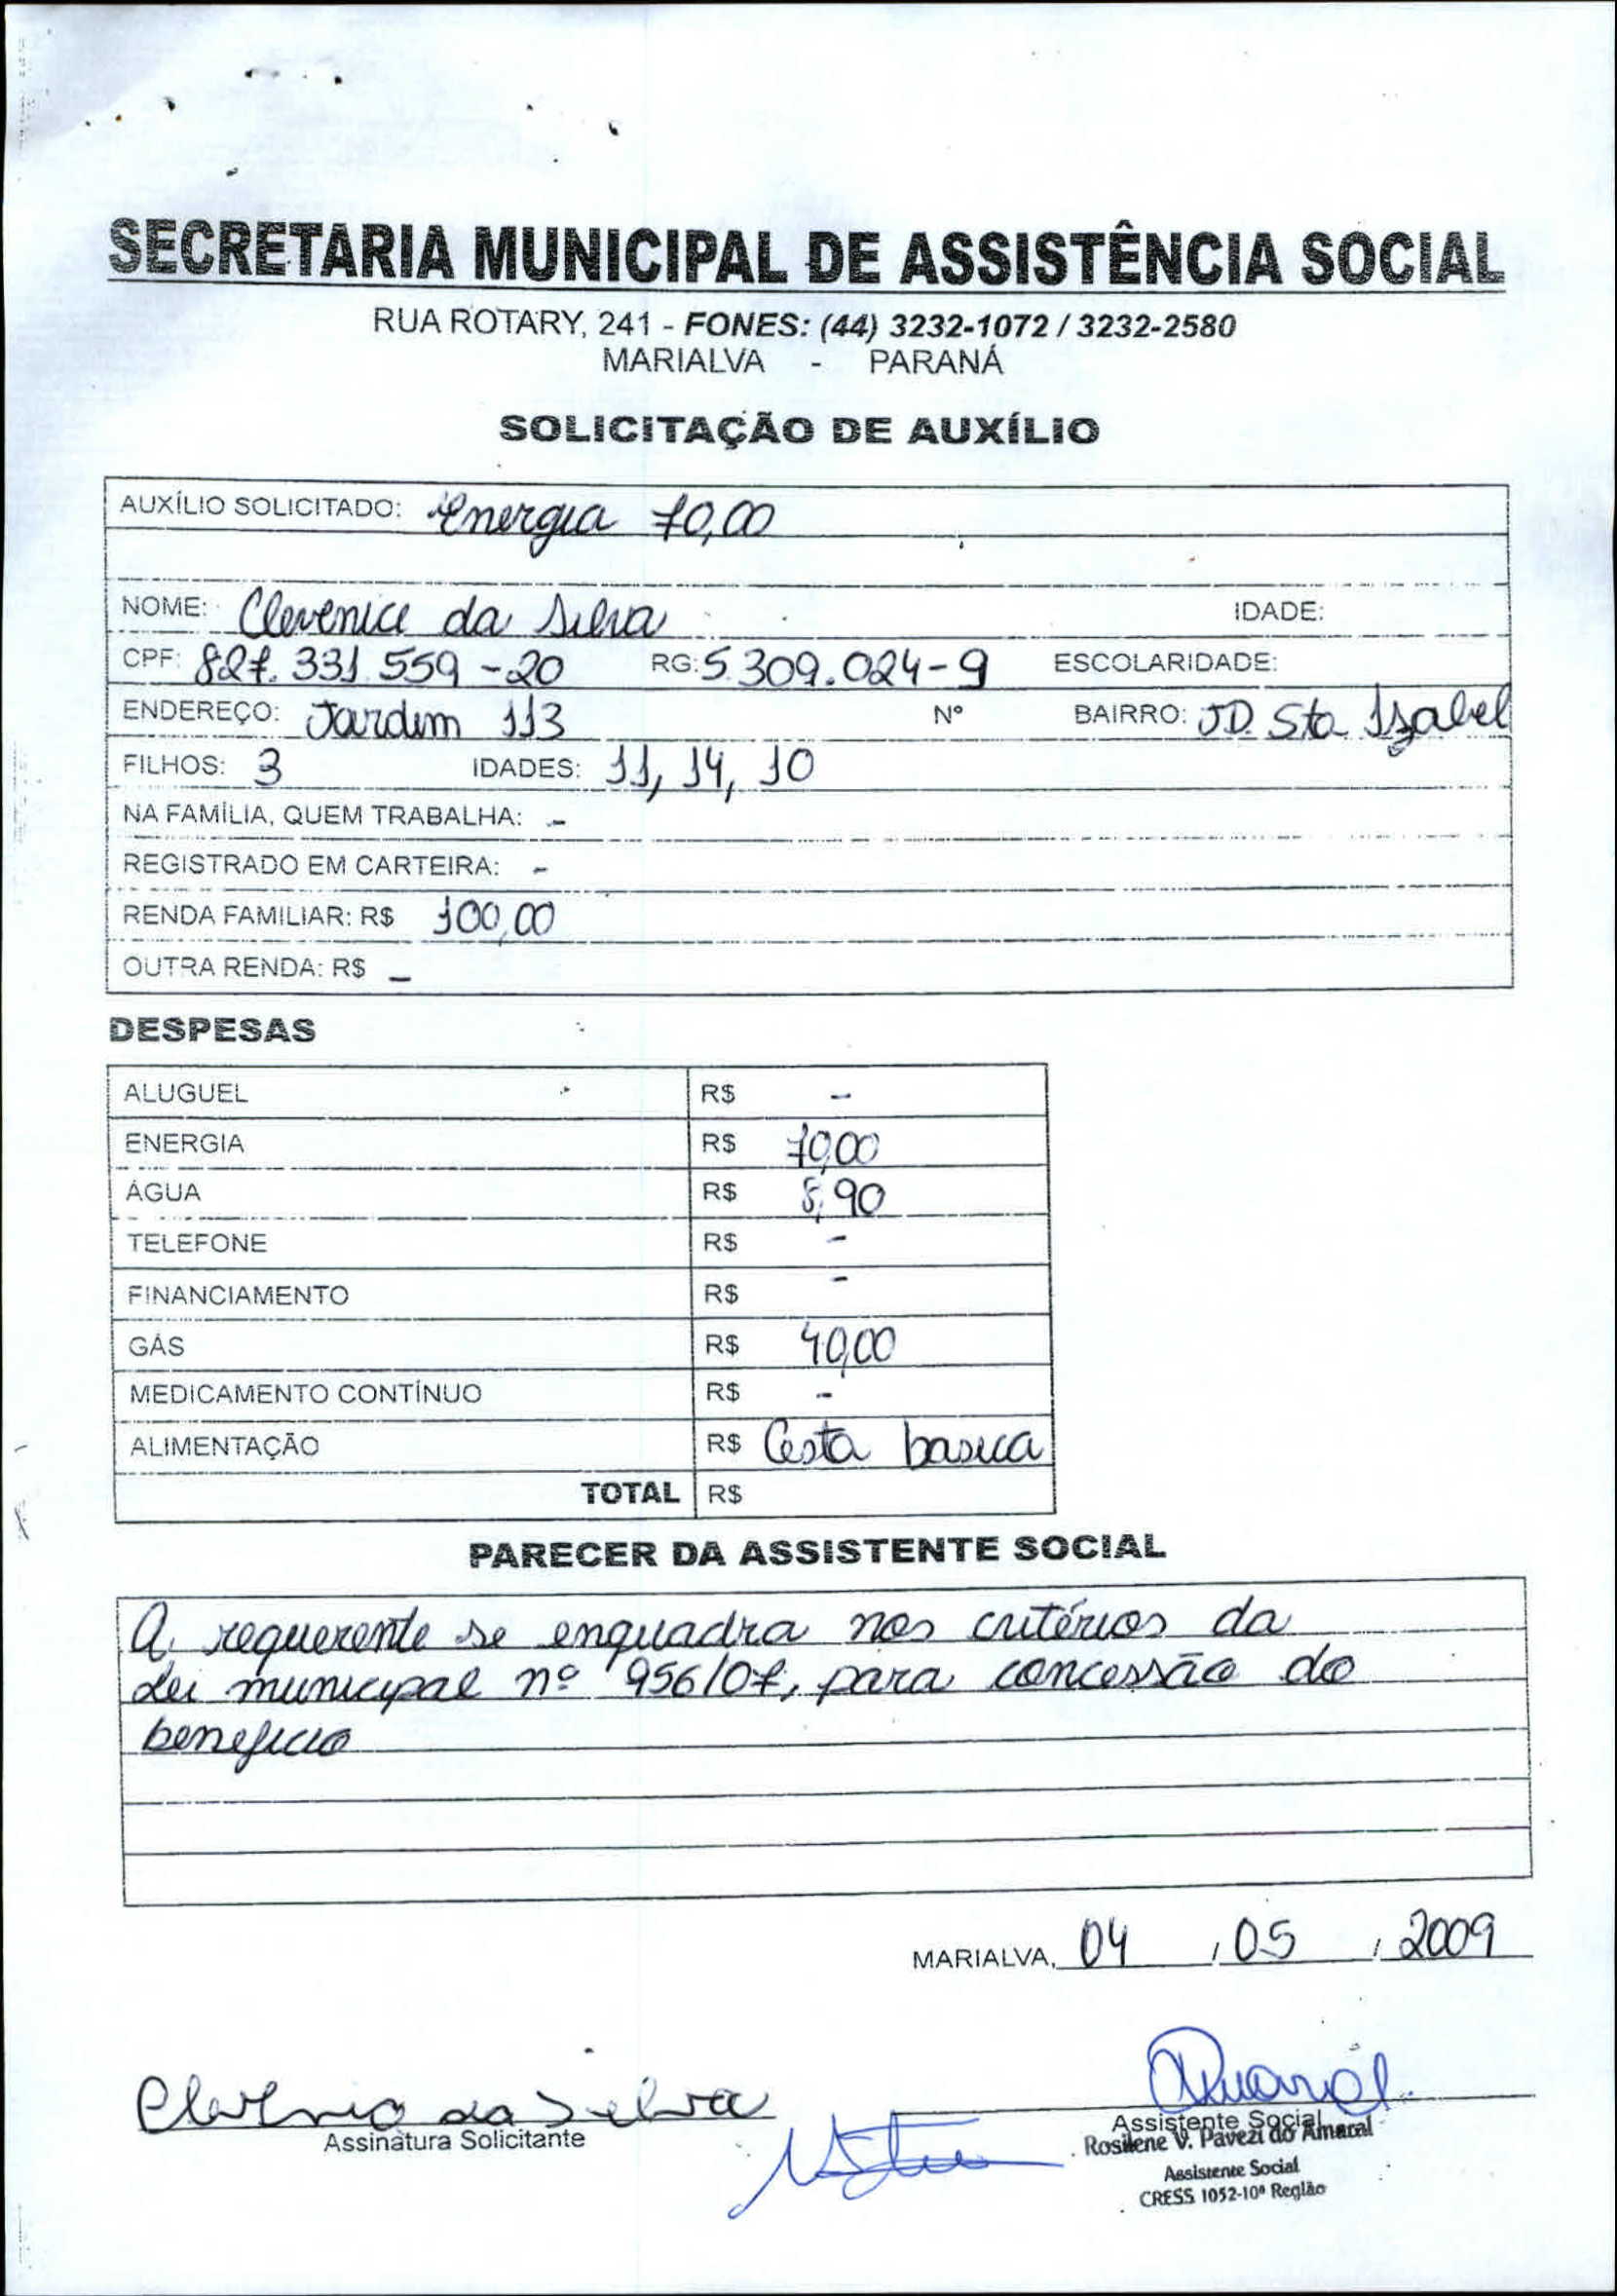 SECRETARIA MUNICIPAL DE ASSISTÊNCIA SOCIAL
RUA ROTARY, 241 - FONES: (44) 3232-1072 / 3232-2580
MARIALVA - PARANÁ
SOLICITAÇÃO DE AUXÍLIO
AUXÍLIO SOLICITADO: Energia 70,00
NOME: Clevenice da Silva IDADE:
CPF: 827.331.559-20 RG: 5.309.024-9 ESCOLARIDADE:
ENDEREÇO: Jardim 113 Nº BAIRRO: JD. Sta Izabel
FILHOS: 3 IDADES: 11, 14, 10
NA FAMÍLIA, QUEM TRABALHA: -
REGISTRADO EM CARTEIRA: -
RENDA FAMILIAR: R$ 100,00
OUTRA RENDA: R$ -
DESPESAS
ALUGUEL R$ -
ENERGIA R$ 70,00
ÁGUA R$ 8,90
TELEFONE R$ -
FINANCIAMENTO R$ -
GÁS R$ 40,00
MEDICAMENTO CONTÍNUO R$ -
ALIMENTAÇÃO R$ Cesta basica
TOTAL R$
PARECER DA ASSISTENTE SOCIAL
A requerente se enquadra nos critérios da
Lei municipal nº 956/07, para concessão do
beneficio
MARIALVA, 04 / 05 / 2009
da Silva
Assinatura Solicitante
Assistente Social
Rosilene V. Pavezi do Amaral
Assistente Social
CRESS 1052-10ª Região